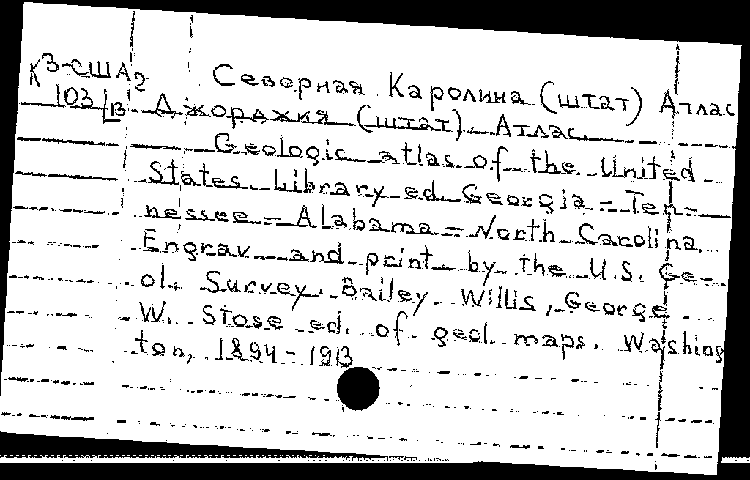 К3-США2 Северная Каролина (штат) Атлас
103/В Джорджия (штат). Атлас.
Geologic atlas of the United
States. Library ed. Georgia = Ten-
nessee = Alabama = North Carolina.
Engrav. and print. by the U.S. Ge-
ol. Survey. Bailey Willis, George
W. Stose ed. of geol. maps. Washing
ton, 1894-1913